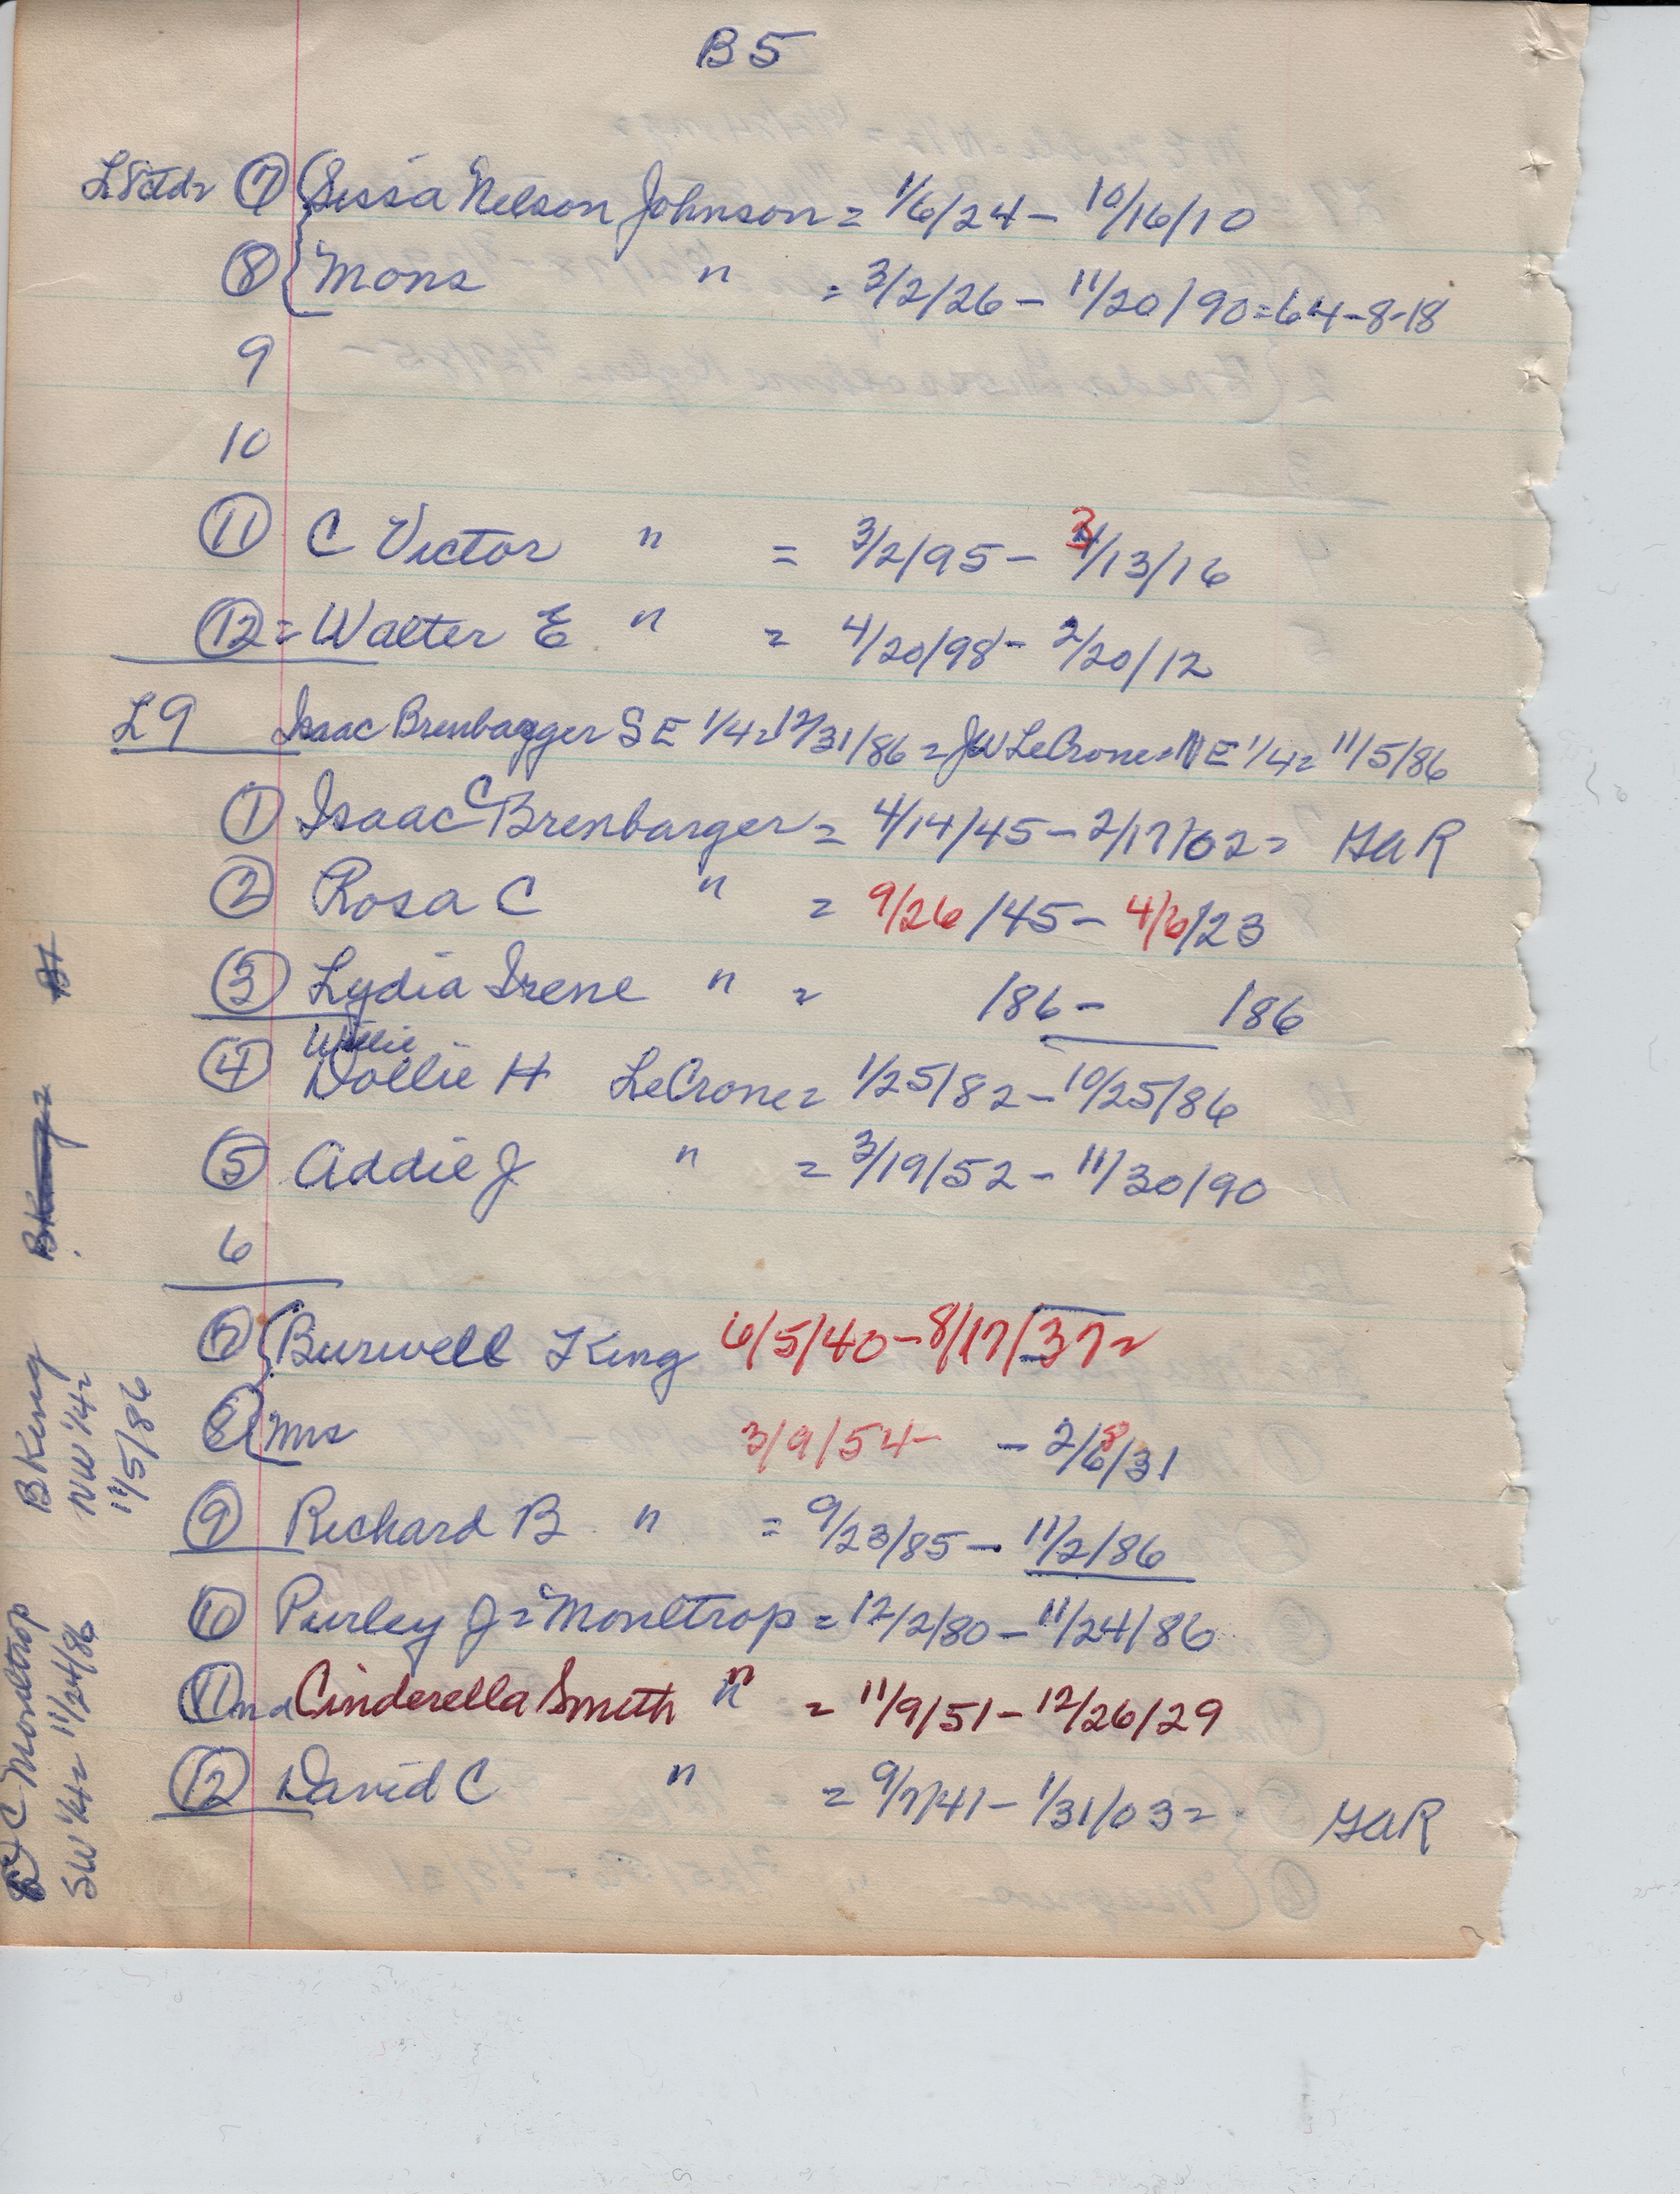 B5
L8ctd= 7 Sissa Nelson Johnson = 1/6/24 – 10/16/10
8 Mons " = 3/2/26 – 11/20/90 = 64-8-18
9
10
11 C Victor " = 3/2/95 – 3/13/16
12 = Walter E " = 4/20/98 – 2/20/12
L9 Isaac Brenbagger SE 1/4 = 12/31/86 = JW LeCrone = NE 1/4 = 11/5/86
1 Isaac C Brenbarger = 4/14/45 – 2/17/02 = GAR
2 Rosa C " = 9/26/45 – 4/6/23
3 Lydia Irene " = /86 – /86
Willie
4 Dollie H LeCrone = 1/25/82 – 10/25/86
5 Addie J " = 3/19/52 – 11/30/90
6
7 Burwell King 6/5/40 – 8/17/37 =
8 Mrs 3/9/54 – – 2/8/31
9 Richard B " = 9/23/85 – 11/2/86
10 Purley J = Moultrop = 12/2/80 – 11/24/86
11 Cinderella Smith " = 11/9/51 – 12/26/29
12 David C " = 9/7/41 – 1/31/03 = GAR
B King
NW 1/4 =
11/5/86
C Moultrop
SW 1/4 = 11/24/86